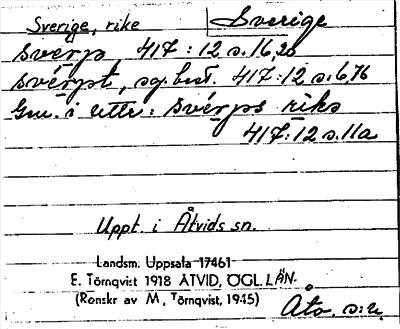 Sverige, rike Sverige
svérp 417:12 s.16,26
svérpt, sg. best. 417:12 s.6,76
Gen. i uttr.: svérps riks
417:12 s.11a
Uppt. i Åtvids sn.
Landsm. Uppsala 17461
E. Törnqvist 1918 ÅTVID, ÖGL. LÄN.
(Renskr av M, Törnqvist, 1945)
Åtv. s:n.